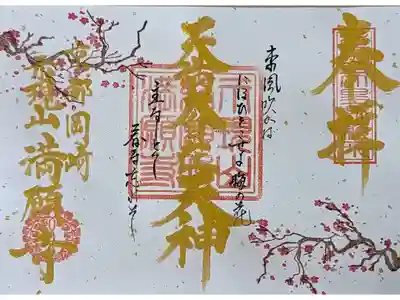 奉拝
東風吹かば
にほひおこせよ梅の花
天満大自在天神
主なしとて
春な忘れそ
京都岡崎
示現山満願寺